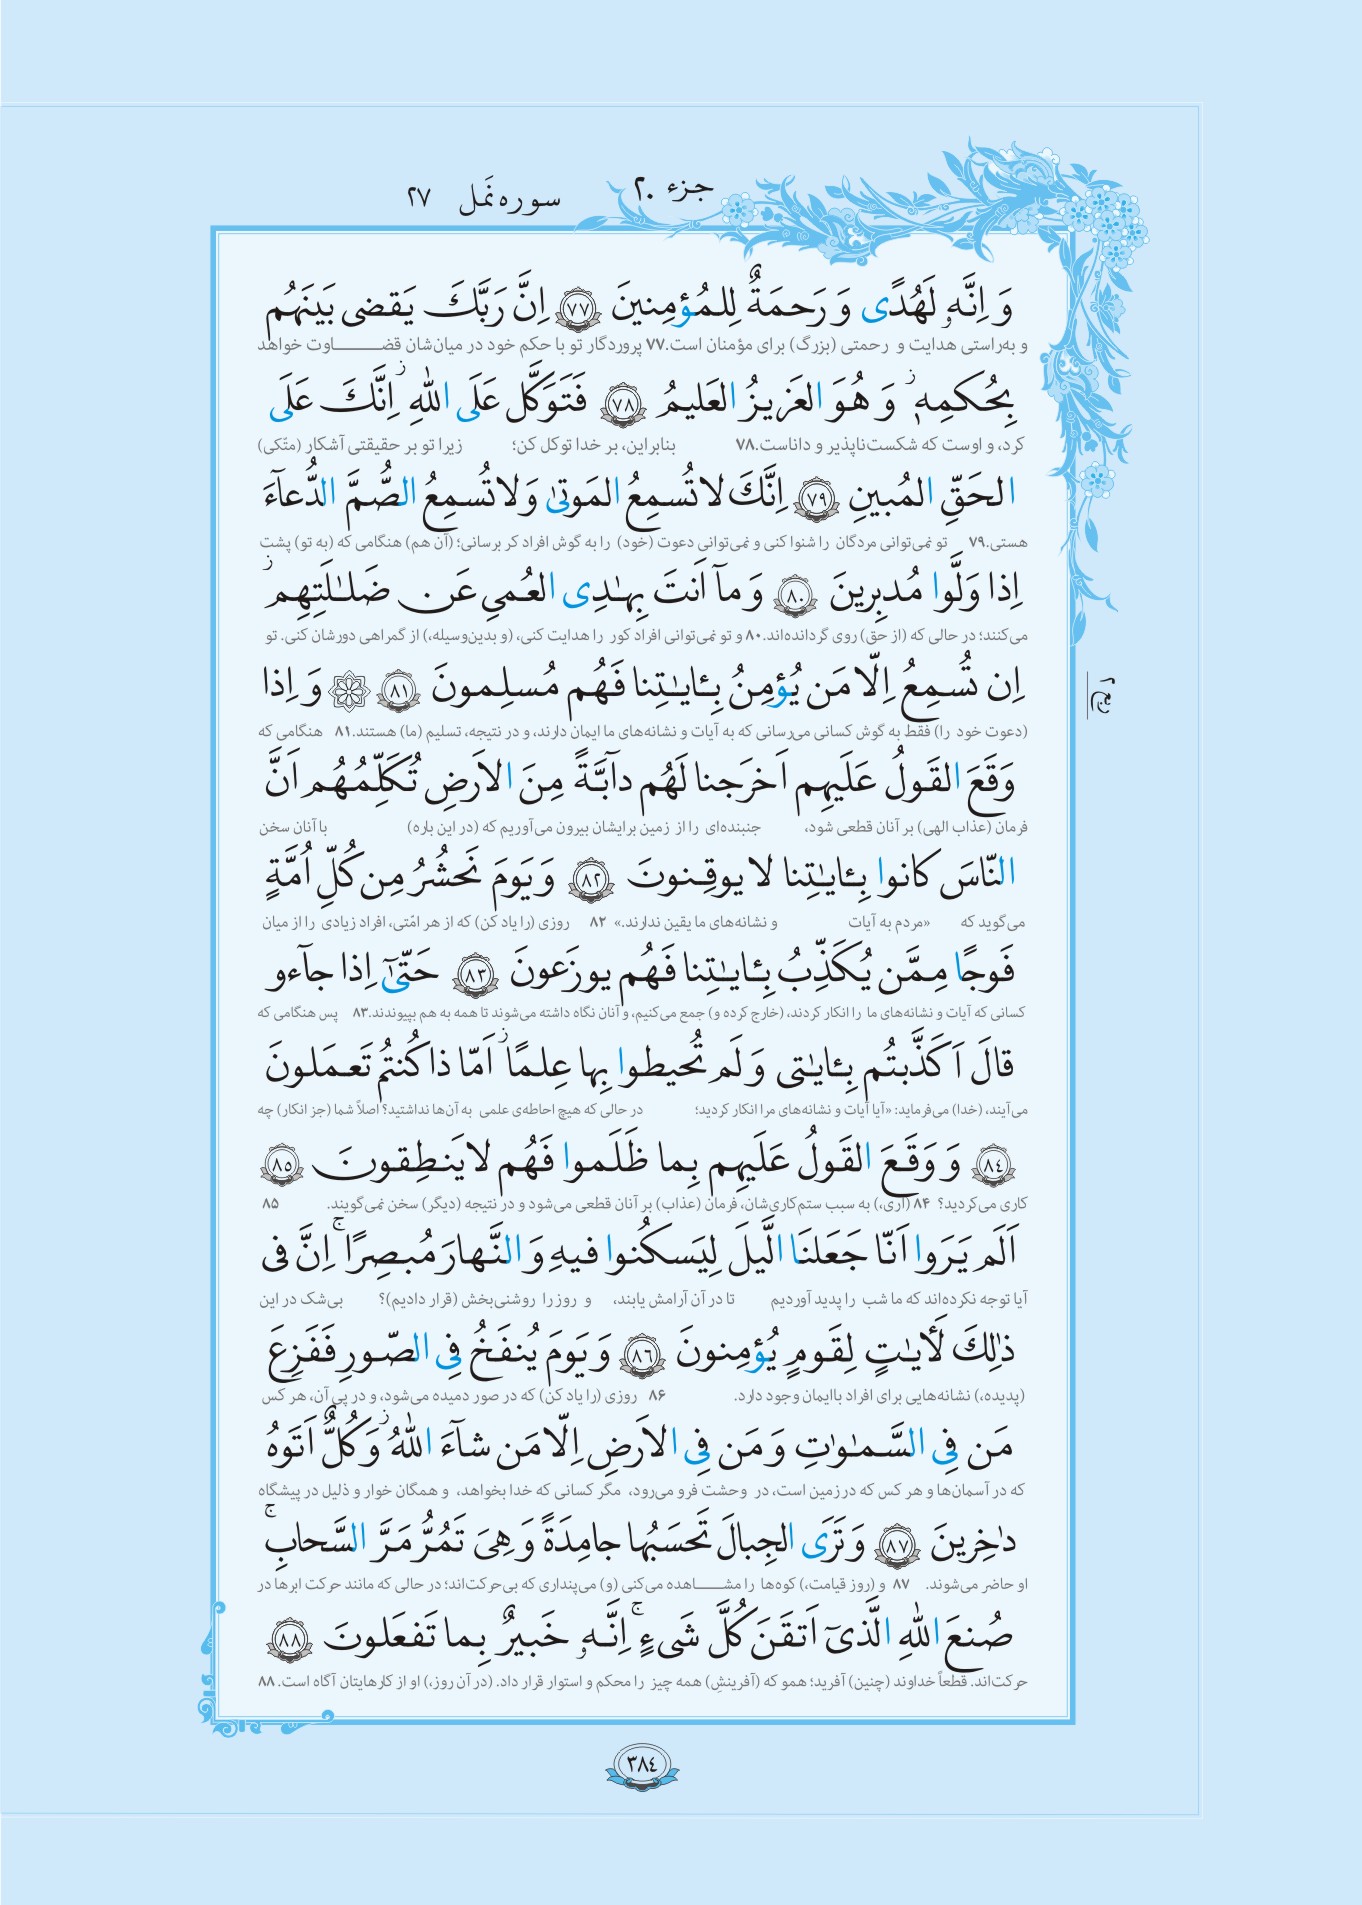 جزء ۲۰
سوره نَمل ۲۷
وَ اِنَّهٗ لَهُدًی وَ رَحمَةٌ لِلمُؤمِنینَ ﴿٧٧﴾ اِنَّ رَبَّكَ یَقضی بَینَهُم
و به‌راستی هدایت و رحمتی (بزرگ) برای مؤمنان است.۷۷ پروردگار تو با حکم خود در میان‌شان قضـــــــاوت خواهد
بِحُکمِهٖ ۚ وَ هُوَ العَزیزُ العَلیمُ ﴿٧٨﴾ فَتَوَکَّل عَلَی اللّٰهِ ۚ اِنَّكَ عَلَی
کرد، و اوست که شکست‌ناپذیر و داناست.۷۸ بنابراین، بر خدا توکل کن؛ زیرا تو بر حقیقتی آشکار (متّکی)
الحَقِّ المُبینِ ﴿٧٩﴾ اِنَّكَ لا تُسمِعُ المَوتیٰ وَ لا تُسمِعُ الصُّمَّ الدُّعآءَ
هستی.۷۹ تو نمی‌توانی مردگان را شنوا کنی و نمی‌توانی دعوت (خود) را به گوش افراد کر برسانی؛ (آن هم) هنگامی که (به تو) پشت
اِذا وَلَّوا مُدبِرینَ ﴿٨٠﴾ وَ مآ اَنتَ بِهٰدِی العُمیِ عَن ضَلٰلَتِهِم
می‌کنند؛ در حالی که (از حق) روی گردانده‌اند.۸۰ و تو نمی‌توانی افراد کور را هدایت کنی، (و بدین‌وسیله،) از گمراهی دورشان کنی. تو
اِن تُسمِعُ اِلّا مَن یُؤمِنُ بِـٔایٰتِنا فَهُم مُسلِمونَ ﴿٨١﴾ وَ اِذا
(دعوت خود را) فقط به گوش کسانی می‌رسانی که به آیات و نشانه‌های ما ایمان دارند، و در نتیجه، تسلیم (ما) هستند.۸۱ هنگامی که
وَقَعَ القَولُ عَلَیهِم اَخرَجنا لَهُم دآبَّةً مِنَ الاَرضِ تُکَلِّمُهُم اَنَّ
فرمان (عذاب الهی) بر آنان قطعی شود، جنبنده‌ای را از زمین برایشان بیرون می‌آوریم که (در این باره) با آنان سخن
النّاسَ کانوا بِـٔایٰتِنا لا یوقِنونَ ﴿٨٢﴾ وَ یَومَ نَحشُرُ مِن کُلِّ اُمَّةٍ
می‌گوید که «مردم به آیات و نشانه‌های ما یقین ندارند.» ۸۲ روزی (را یاد کن) که از هر امّتی، افراد زیادی را از میان
فَوجًا مِمَّن یُکَذِّبُ بِـٔایٰتِنا فَهُم یوزَعونَ ﴿٨٣﴾ حَتّیٰٓ اِذا جآءو
کسانی که آیات و نشانه‌های ما را انکار کردند، (خارج کرده و) جمع می‌کنیم، و آنان نگاه داشته می‌شوند تا همه به هم بپیوندند.۸۳ پس هنگامی که
قالَ اَکَذَّبتُم بِـٔایٰتی وَ لَم تُحیطوا بِها عِلمًا اَمّا ذا کُنتُم تَعمَلونَ
می‌آیند، (خدا) می‌فرماید: «آیا آیات و نشانه‌های مرا انکار کردید؛ در حالی که هیچ احاطه‌ی علمی به آن‌ها نداشتید؟ اصلاً شما (جز انکار) چه
﴿٨٤﴾ وَ وَقَعَ القَولُ عَلَیهِم بِما ظَلَموا فَهُم لا یَنطِقونَ ﴿٨٥﴾
کاری می‌کردید؟ ۸۴ (آری،) به سبب ستم‌کاری‌شان، فرمان (عذاب) بر آنان قطعی می‌شود و در نتیجه (دیگر) سخن نمی‌گویند. ۸۵
اَلَم یَرَوا اَنّا جَعَلنَا الَّیلَ لِیَسکُنوا فیهِ وَ النَّهارَ مُبصِرًا ۚ اِنَّ فی
آیا توجه نکرده‌اند که ما شب را پدید آوردیم تا در آن آرامش یابند، و روز را روشنی‌بخش (قرار دادیم)؟ بی‌شک در این
ذٰلِكَ لَأٰیٰتٍ لِقَومٍ یُؤمِنونَ ﴿٨٦﴾ وَ یَومَ یُنفَخُ فِی الصّورِ فَفَزِعَ
(پدیده،) نشانه‌هایی برای افراد باایمان وجود دارد. ۸۶ روزی (را یاد کن) که در صور دمیده می‌شود، و در پی آن، هر کس
مَن فِی السَّمٰوٰتِ وَ مَن فِی الاَرضِ اِلّا مَن شآءَ اللّٰهُ ۚ وَ کُلٌّ اَتَوهُ
که در آسمان‌ها و هر کس که در زمین است، در وحشت فرو می‌رود، مگر کسانی که خدا بخواهد، و همگان خوار و ذلیل در پیشگاه
داٰخِرینَ ﴿٨٧﴾ وَ تَرَی الجِبالَ تَحسَبُها جامِدَةً وَ هِیَ تَمُرُّ مَرَّ السَّحابِ ۚ
او حاضر می‌شوند. ۸۷ و (روز قیامت،) کوه‌ها را مشـــــاهده می‌کنی (و) می‌پنداری که بی‌حرکت‌اند؛ در حالی که مانند حرکت ابرها در
صُنعَ اللّٰهِ الَّذیٓ اَتقَنَ کُلَّ شَیءٍ ۚ اِنَّهٗ خَبیرٌ بِما تَفعَلونَ ﴿٨٨﴾
حرکت‌اند. قطعاً خداوند (چنین) آفرید؛ همو که (آفرینشِ) همه چیز را محکم و استوار قرار داد. (در آن روز،) او از کارهایتان آگاه است. ۸۸
۳۸٤